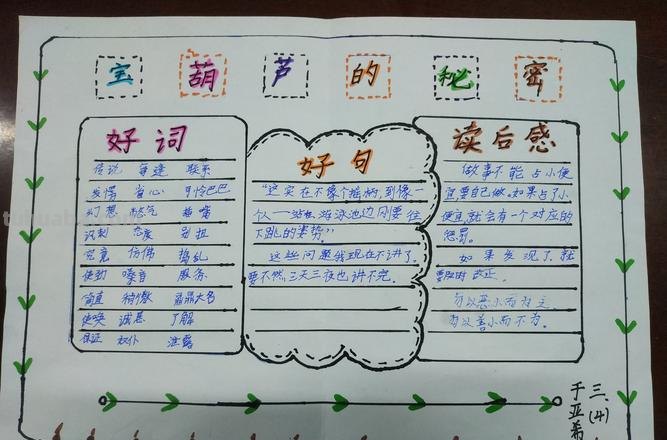 宝葫芦的秘密
好词
传说 每逢 联系
发愣 省心 可怜巴巴
幻想
识别 态度 别扭
究竟 仿佛 捣乱
使劲 嗓音 服务
简直 稀傲 鼎鼎大名
使唤 诚恳 了解
保证 奴仆 泄露
好句
“这实在不像个摇树,到像一
个人一站在游泳池边刚要往
下跳的姿势。”
这些问题我现在不讲了。
要不然,三天三夜也讲不完。
读后感
做事不能占小便
宜,要自己做。如果占了小
便宜,就会有一个对应的
惩罚。
如果发现了,就
要及时改正。
勿以恶小而为之
勿以善小而不为。
三(4)
于亚希